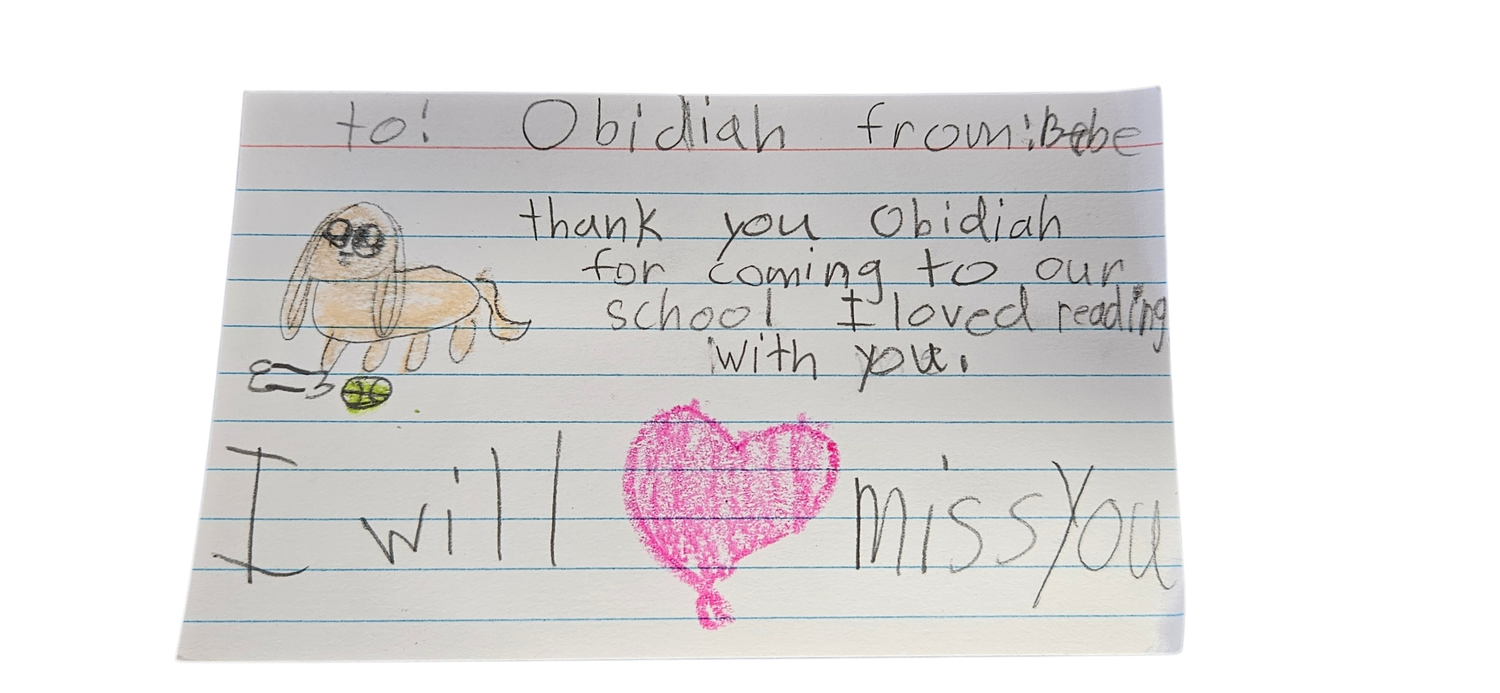 to: Obidiah from: Bebe
thank you Obidiah
for coming to our
school I loved reading
with you.
I will miss You